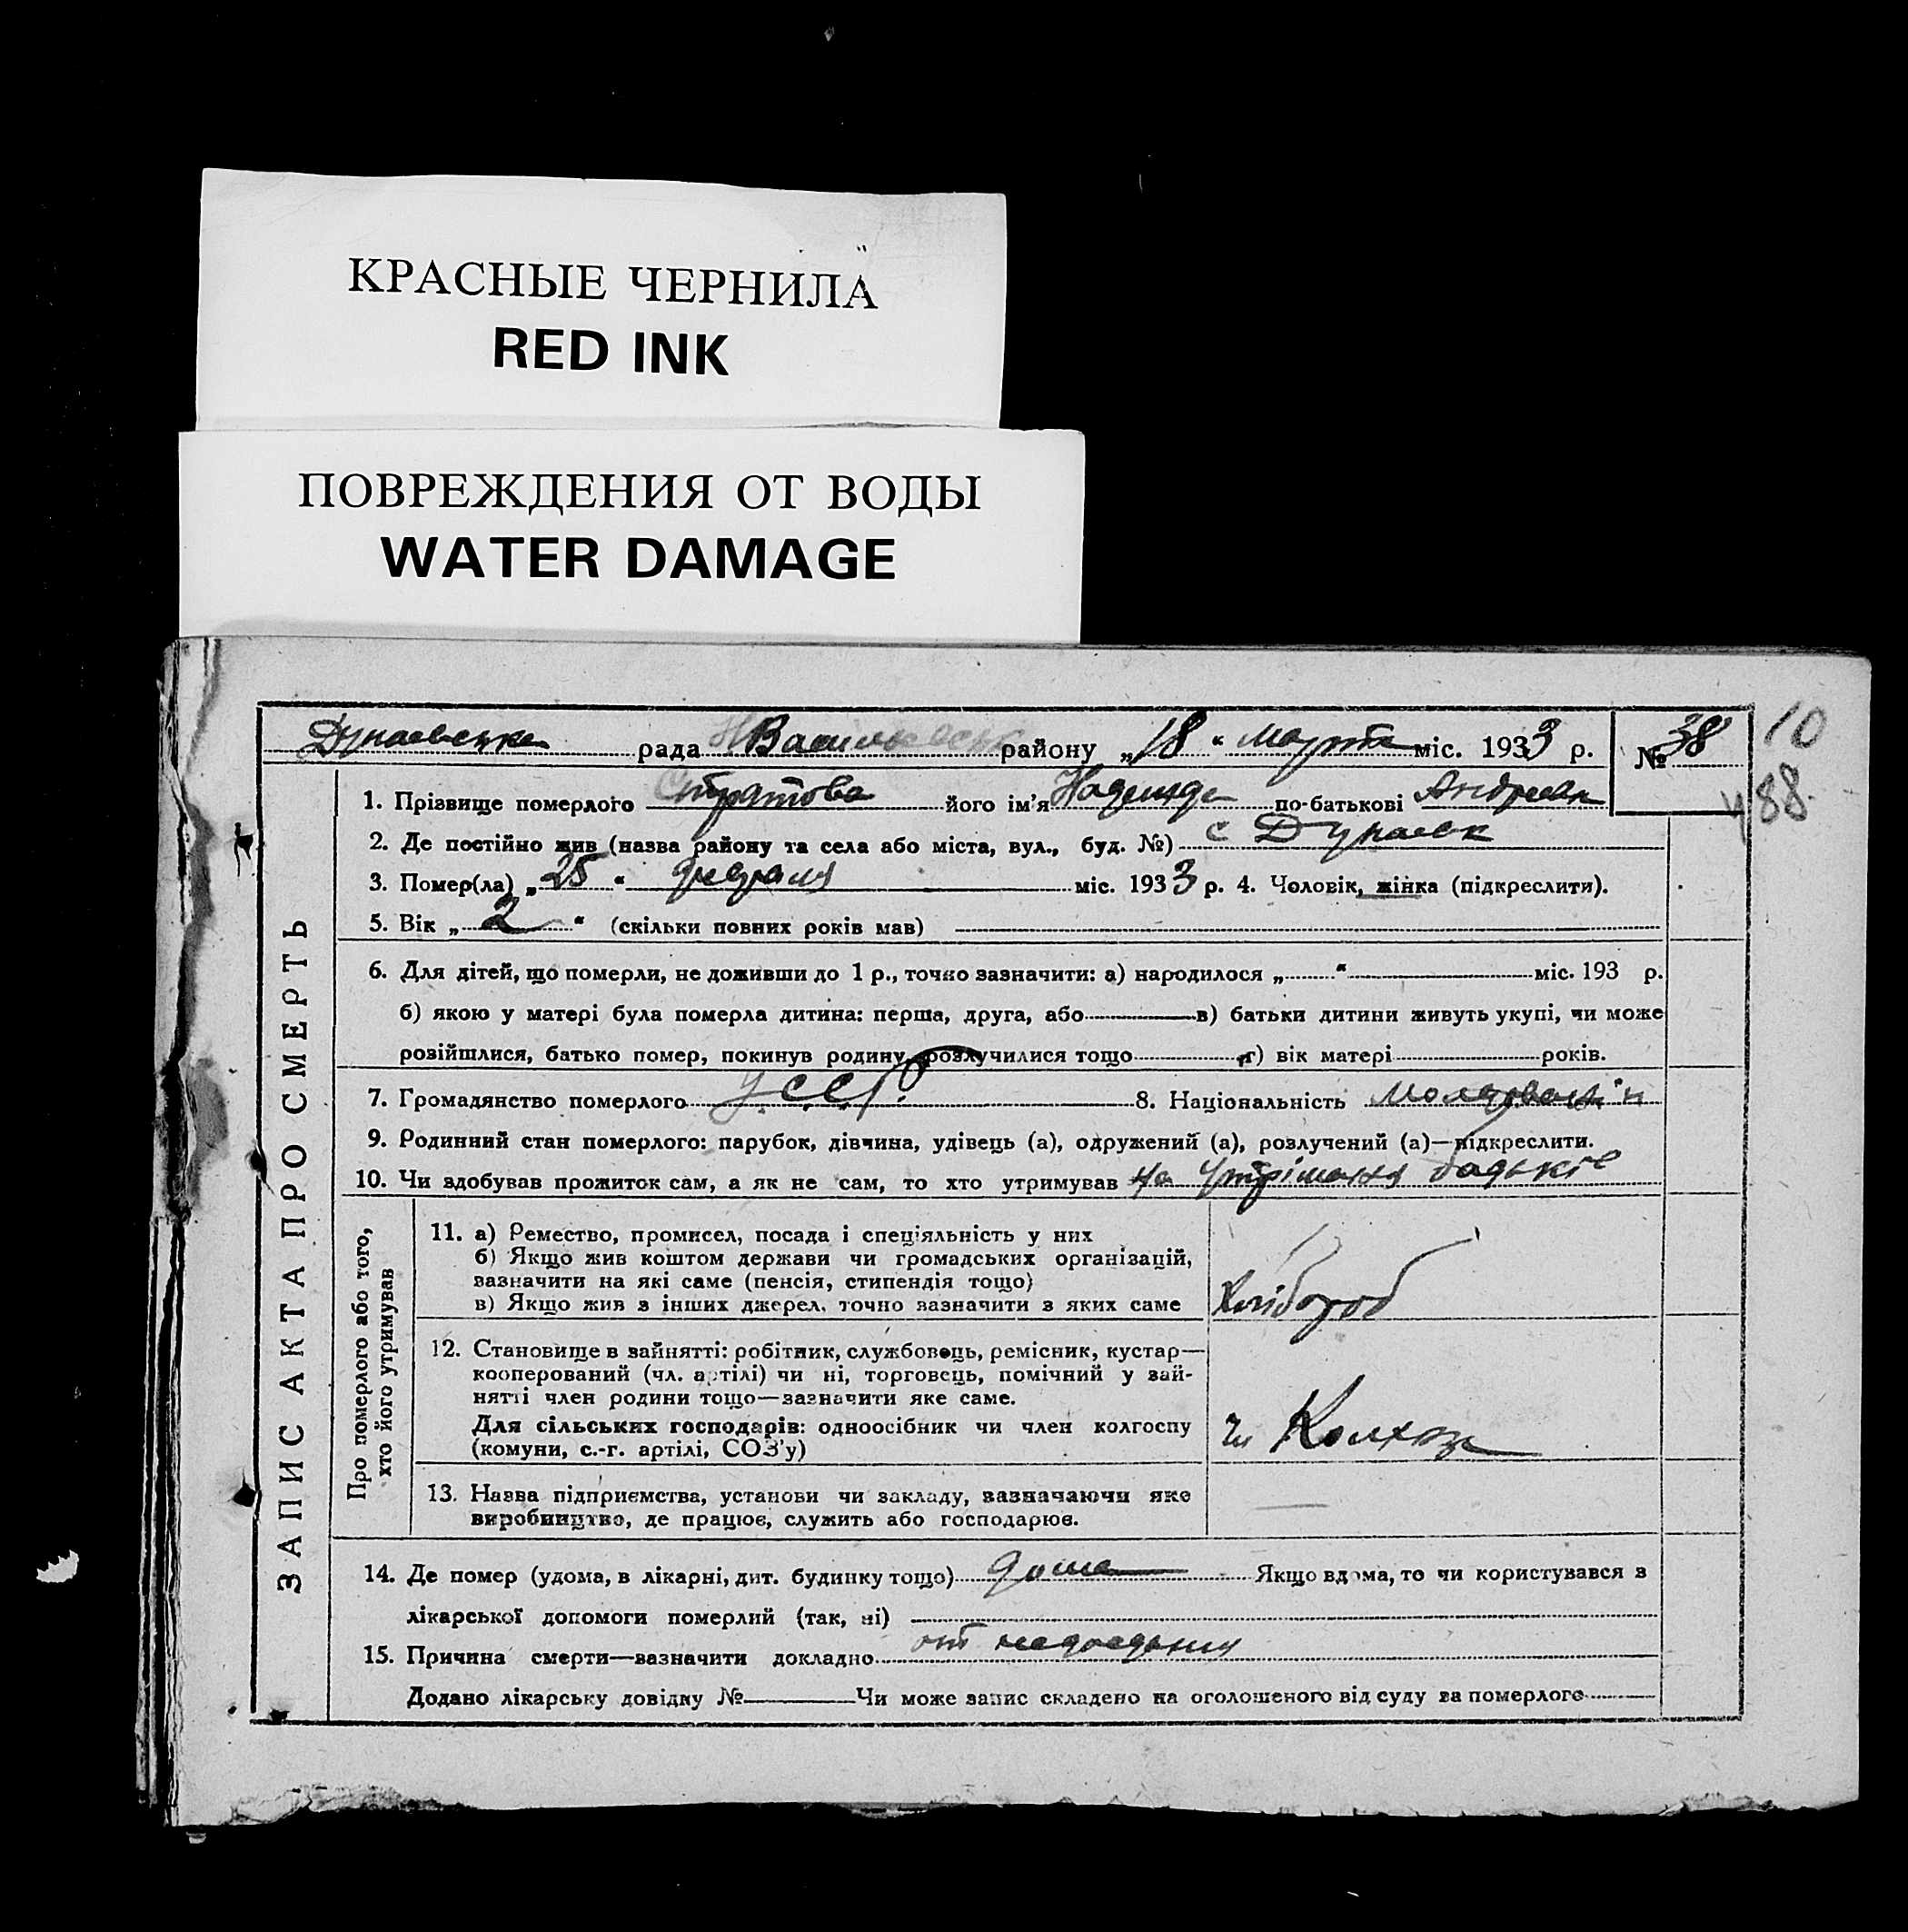 КРАСНЫЕ ЧЕРНИЛА
RED INK
ПОВРЕЖДЕНИЯ ОТ ВОДЫ
WATER DAMAGE
Дунаевська рада району „18“ марта міс. 1933 р. № 38
10
488
ЗАПИС АКТА ПРО СМЕРТЬ
1. Прізвище померлого Стратова його ім'я Надежда по-батькові Андреевн
2. Де постійно жив (назва району та села або міста, вул., буд. №) с Дунаевк
3. Помер(ла) „25“ февраля міс. 1933 р. 4. Чоловік, жінка (підкреслити).
5. Вік „2“ (скільки повних років мав)
6. Для дітей, що померли, не доживши до 1 р., точно зазначити: а) народилося „ “ міс. 193 р.
б) якою у матері була померла дитина: перша, друга, або в) батьки дитини живуть укупі, чи може
розійшлися, батько помер, покинув родину, розлучилися тощо г) вік матері років.
7. Громадянство померлого УССР. 8. Національність
9. Родинний стан померлого: парубок, дівчина, удівець (а), одружений (а), розлучений (а)—підкреслити.
10. Чи здобував прожиток сам, а як не сам, то хто утримував на
Про померлого або того,
хто його утримував
11. а) Ремество, промисел, посада і спеціяльність у них
б) Якщо жив коштом держави чи громадських організацій,
зазначити на які саме (пенсія, стипендія тощо)
в) Якщо жив з інших джерел, точно зазначити з яких саме
Хлібороб
12. Становище в зайнятті: робітник, службовець, ремісник, кустар—
кооперований (чл. артілі) чи ні, торговець, помічний у зай-
нятті член родини тощо—зазначити яке саме.
Для сільських господарів: одноосібник чи член колгоспу
(комуни, с.-г. артілі, СОЗ'у)
чл Колхоза
13. Назва підприємства, установи чи закладу, зазначаючи яке
виробництво, де працює, служить або господарює.
14. Де помер (удома, в лікарні, дит. будинку тощо) дома Якщо вдома, то чи користувався з
лікарської допомоги померлий (так, ні)
15. Причина смерти—зазначити докладно от недоедания
Додано лікарську довідку № Чи може запис складено на оголошеного від суду за померлого